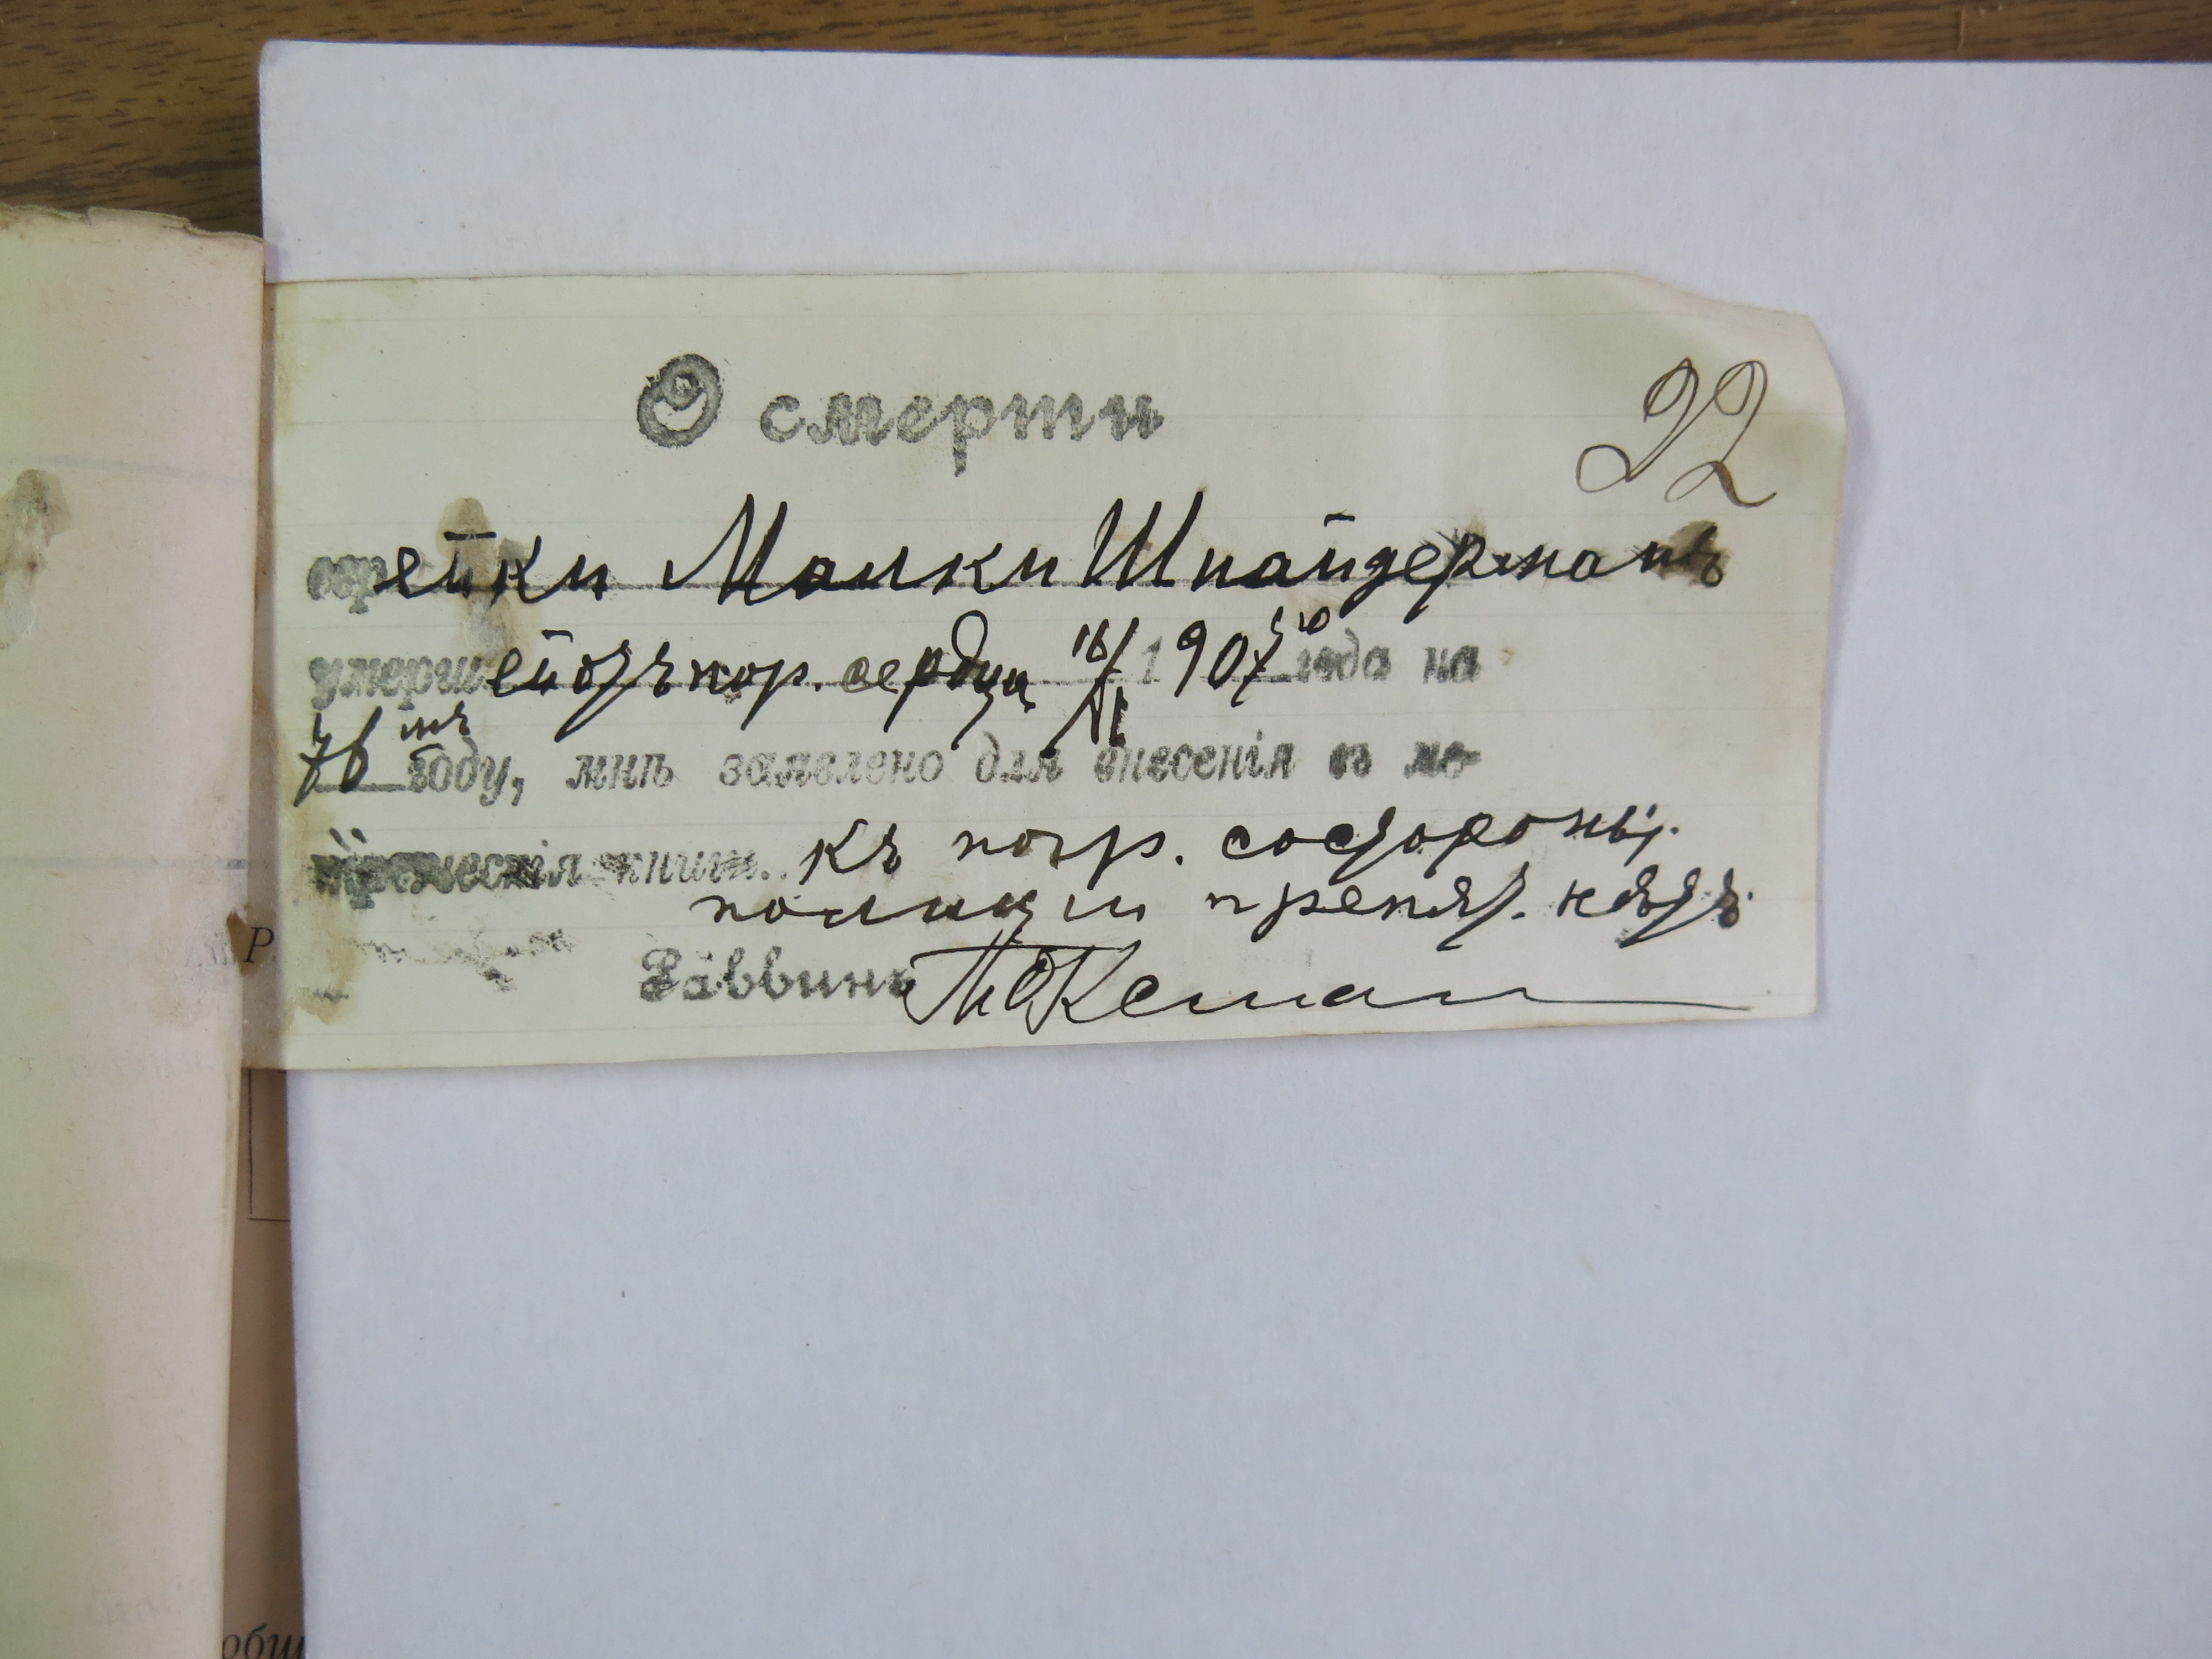 О смерти
22
еврейки Малки Шпайдерманъ
умершей отъ пор. сердца 16/XI 1907 года на
76 мъ году, мнѣ заявлено для внесенія въ ме-
трическія книги. къ погр. со стороны
полиціи препят. нѣтъ
Раввинъ
Р.
общ